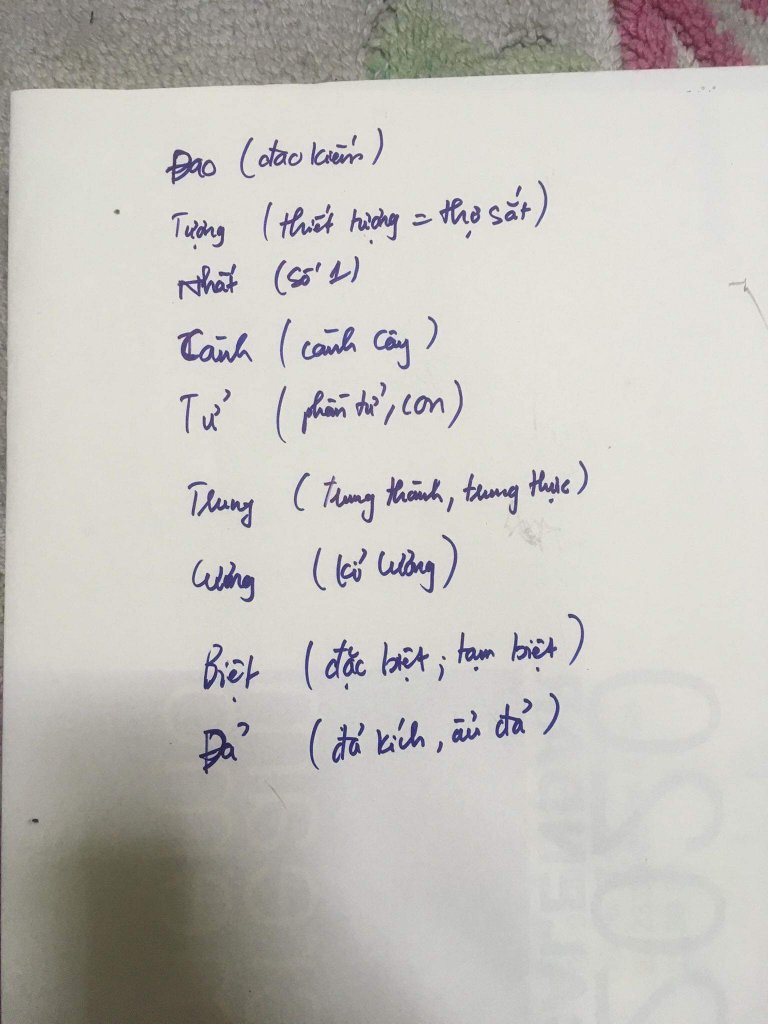 Đao (đao kiếm)
Tượng (thiết tượng = thợ sắt)
Nhất (số 1)
Cành (cành cây)
Tử (phần tử, con)
Trung (trung thành, trung thực)
Cương (kỉ cương)
Biệt (đặc biệt; tạm biệt)
Đả (đả kích, ẩu đả)
2020